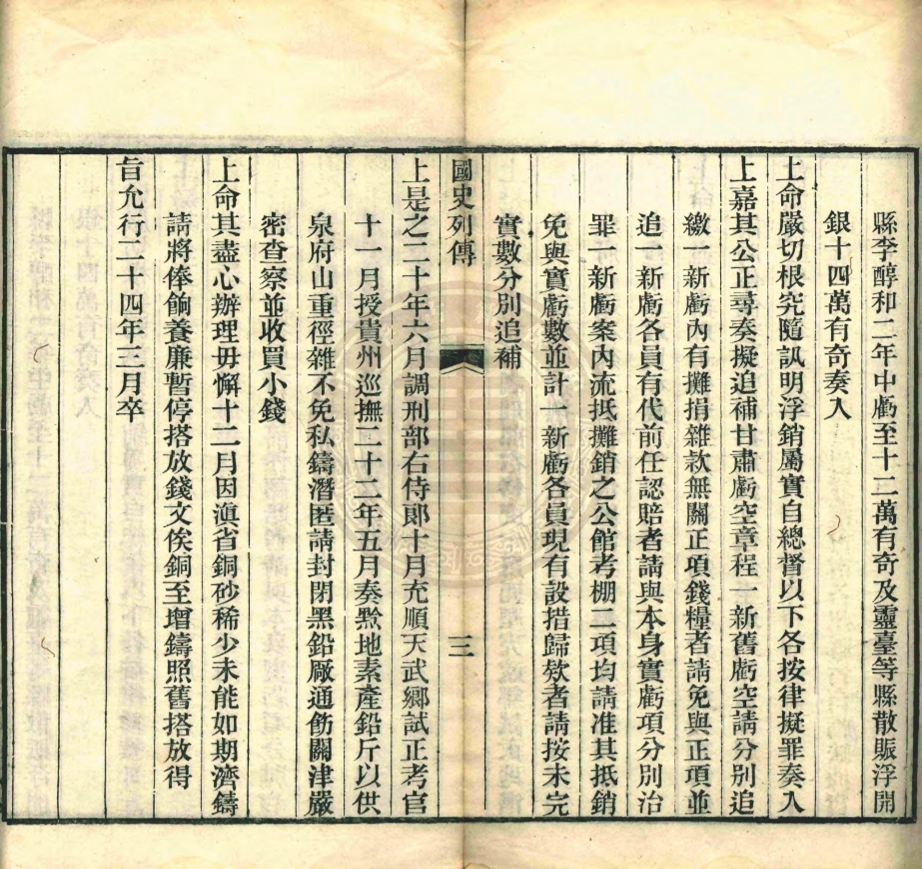 縣李醇和二年中虧至十二萬有奇及靈臺等縣散賑浮開
銀十四萬有奇奏入
上命嚴切根究隨訊明浮銷屬實自總督以下各按律擬罪奏入
上嘉其公正尋奏擬追補甘肅虧空章程一新舊虧空請分別追
繳一新虧內有攤捐雜款無關正項錢糧者請免與正項並
追一新虧各員有代前任認賠者請與本身實虧項分別治
罪一新虧案內流抵攤銷之公館考棚二項均請准其抵銷
免與實虧數並計一新虧各員現有設措歸欵者請按未完
實數分別追補
國史列傳
三
上是之二十年六月調刑部右侍郎十月充順天武鄉試正考官
十一月授貴州巡撫二十二年五月奏黔地素產鉛斤以供
泉府山重徑雜不免私鑄潛匿請封閉黑鉛厰通飭關津嚴
密查察並收買小錢
上命其盡心辦理毋懈十二月因滇省銅砂稀少未能如期濟鑄
請將俸餉養廉暫停搭放錢文俟銅至增鑄照舊搭放得
旨允行二十四年三月卒